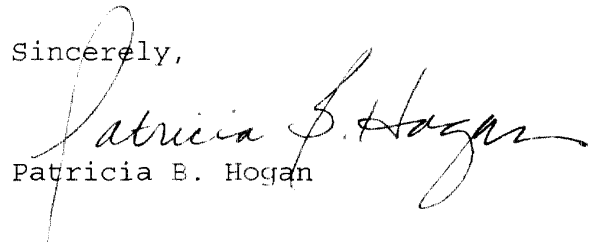 Sincerely,
Patricia B. Hogan
Patricia B. Hogan